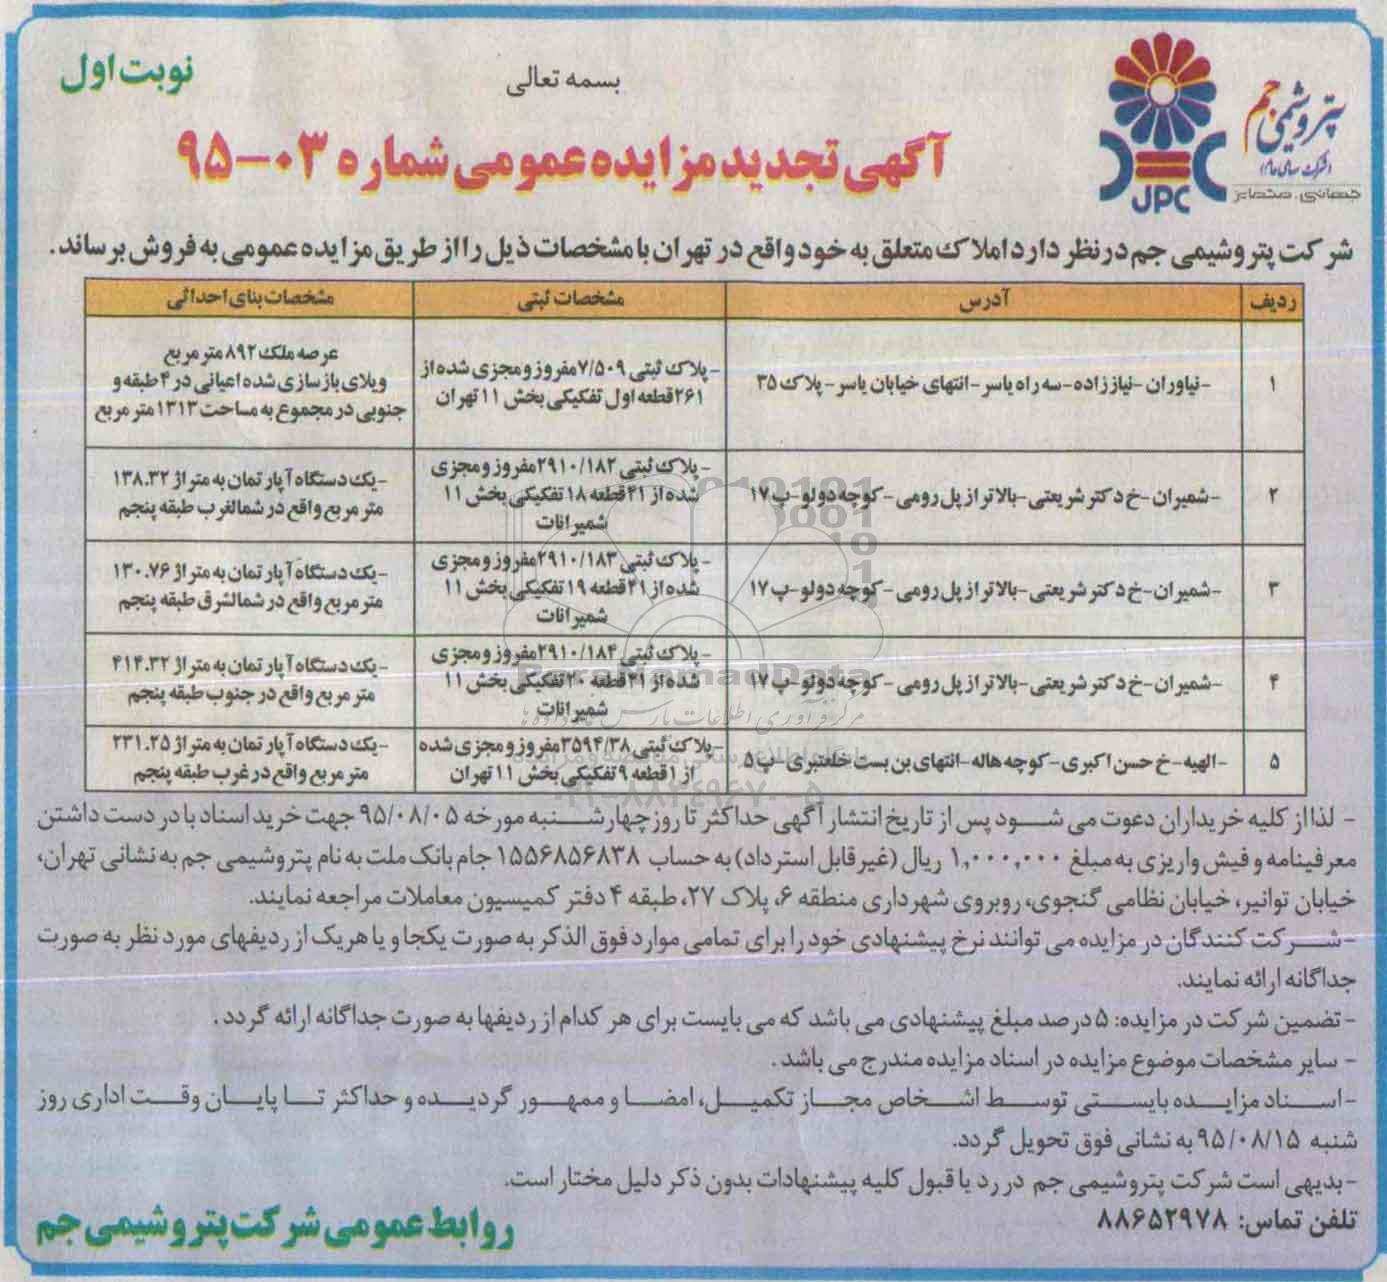 پتروشیمی جم
(شرکت سهامی عام)
جهانی. متمایز
JPC
بسمه تعالی
نوبت اول
آگهی تجدید مزایده عمومی شماره ۰۳-۹۵
شرکت پتروشیمی جم در نظر دارد املاک متعلق به خود واقع در تهران با مشخصات ذیل را از طریق مزایده عمومی به فروش برساند.
ردیف آدرس مشخصات ثبتی مشخصات بنای احداثی
۱
-نیاوران-نیاززاده-سه راه یاسر-انتهای خیابان یاسر-پلاک ۳۵
-پلاک ثبتی ۷/۵۰۹مفروز و مجزی شده از
۲۶۱قطعه اول تفکیکی بخش ۱۱ تهران
عرصه ملک ۸۹۲ متر مربع
ویلای بازسازی شده اعیانی در ۴ طبقه و
جنوبی در مجموع به مساحت ۱۳۱۳ متر مربع
۲
-شمیران-خ دکتر شریعتی-بالاتر از پل رومی-کوچه دولو-پ ۱۷
-پلاک ثبتی ۲۹۱۰/۱۸۲مفروز و مجزی
شده از ۲۱قطعه ۱۸ تفکیکی بخش ۱۱
شمیرانات
-یک دستگاه آپارتمان به متراژ ۱۳۸.۳۲
متر مربع واقع در شمالغرب طبقه پنجم
۳
-شمیران-خ دکتر شریعتی-بالاتر از پل رومی-کوچه دولو-پ ۱۷
-پلاک ثبتی ۲۹۱۰/۱۸۳مفروز و مجزی
شده از ۲۱قطعه ۱۹ تفکیکی بخش ۱۱
شمیرانات
-یک دستگاه آپارتمان به متراژ ۱۳۰.۷۶
متر مربع واقع در شمالشرق طبقه پنجم
۴
-شمیران-خ دکتر شریعتی-بالاتر از پل رومی-کوچه دولو-پ ۱۷
-پلاک ثبتی ۲۹۱۰/۱۸۴مفروز و مجزی
شده از ۲۱قطعه ۲۰تفکیکی بخش ۱۱
شمیرانات
-یک دستگاه آپارتمان به متراژ ۴۱۴.۳۲
متر مربع واقع در جنوب طبقه پنجم
۵
-الهیه-خ حسن اکبری-کوچه هاله-انتهای بن بست خلعتبری-پ ۵
-پلاک ثبتی ۳۵۹۴/۳۸مفروز و مجزی شده
از ۱ قطعه ۹ تفکیکی بخش ۱۱ تهران
-یک دستگاه آپارتمان به متراژ ۲۳۱.۲۵
متر مربع واقع در غرب طبقه پنجم
- لذا از کلیه خریداران دعوت می شود پس از تاریخ انتشار آگهی حداکثر تا روز چهارشنبه مورخه ۹۵/۰۸/۰۵ جهت خرید اسناد با در دست داشتن
معرفینامه و فیش واریزی به مبلغ ۱,۰۰۰,۰۰۰ ریال (غیر قابل استرداد) به حساب ۱۵۵۶۸۵۶۸۳۸ جام بانک ملت به نام پتروشیمی جم به نشانی تهران،
خیابان توانیر، خیابان نظامی گنجوی، روبروی شهرداری منطقه ۶، پلاک ۲۷، طبقه ۴ دفتر کمیسیون معاملات مراجعه نمایند.
-شرکت کنندگان در مزایده می توانند نرخ پیشنهادی خود را برای تمامی موارد فوق الذکر به صورت یکجا و یا هریک از ردیفهای مورد نظر به صورت
جداگانه ارائه نمایند.
-تضمین شرکت در مزایده: ۵ درصد مبلغ پیشنهادی می باشد که می بایست برای هر کدام از ردیفها به صورت جداگانه ارائه گردد.
- سایر مشخصات موضوع مزایده در اسناد مزایده مندرج می باشد.
-اسناد مزایده بایستی توسط اشخاص مجاز تکمیل، امضا و ممهور گردیده و حداکثر تا پایان وقت اداری روز
شنبه ۹۵/۰۸/۱۵ به نشانی فوق تحویل گردد.
-بدیهی است شرکت پتروشیمی جم در رد یا قبول کلیه پیشنهادات بدون ذکر دلیل مختار است.
تلفن تماس: ۸۸۶۵۲۹۷۸
روابط عمومی شرکت پتروشیمی جم